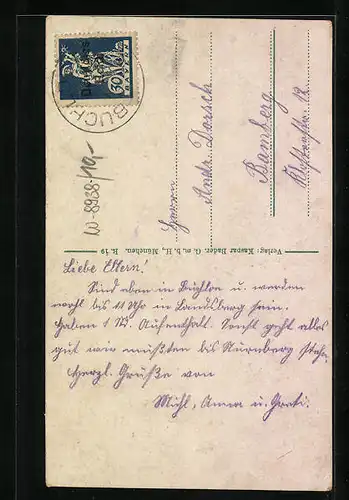 BUCHL
Deutsches Reich
60 60
W-8938/10,-
Herrn
Andr. Dorsch
Bamberg
Klosterstr. 12
Verlag: Kaspar Bader, G. m. b. H., München. R. 19
Liebe Eltern!
Sind eben in Buchloe u. werden
wohl bis 11 Uhr in Landsberg sein.
Haben 1 St. Aufenthalt. Sonst geht alles
gut wir mußten bis Nürnberg stehn.
Herzl. Grüße von
Michl, Anna u. Greti.